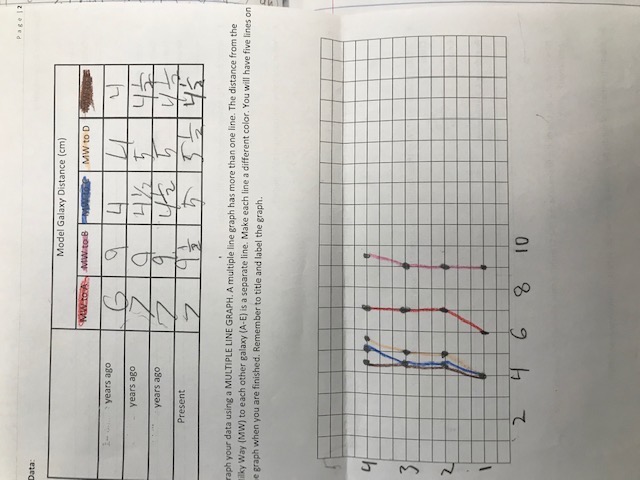 Page | 2
Data:
Model Galaxy Distance (cm)
MW to A MW to B MW to D
years ago 6 9 4 4 4
years ago 7 9 4 1/2 5 4 1/2
years ago 7 9 4 1/2 5 4 1/2
Present 7 9 1/2 5 5 1/2 4 1/2
raph your data using a MULTIPLE LINE GRAPH. A multiple line graph has more than one line. The distance from the
ilky Way (MW) to each other galaxy (A-E) is a separate line. Make each line a different color. You will have five lines on
e graph when you are finished. Remember to title and label the graph.
4
3
2
1
2 4 6 8 10